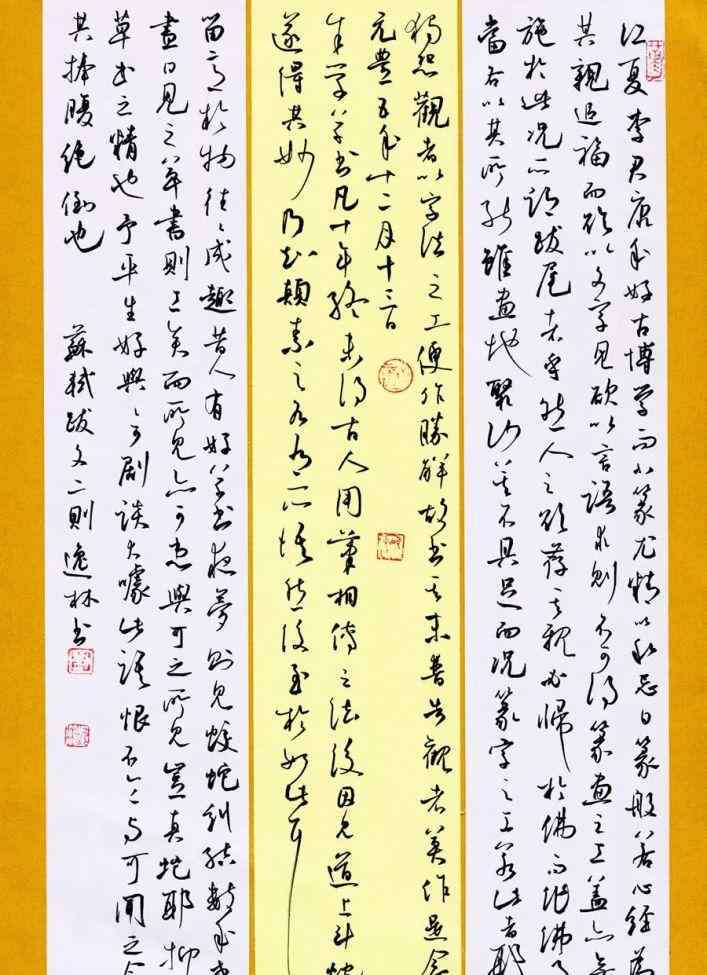 江夏李君康年好古博学而小篆尤精以私忌日篆般若心經為
其親追福而欲以文字見欲以言語求則不可得篆畫之工蓋亦無
施於此况所謂跋尾者乎然人之欲薦其親必歸於佛而作佛事
當各以其所能雖畫地聚沙莫不具足而况篆字之工若此者耶
獨恐觀者以字法之工便作勝解故書其末普告觀者莫作是念
元豐五年十二月十三日
年學草書凡十年終未得古人用筆相傳之法後因見道上斗蛇
遂得其妙乃知顛素之各有所悟然後至於如此耳
留意於物往往成趣昔人有好草書夜夢則見蛟蛇糾結數年或
晝日見之草書則工矣而所見亦可患與可之所見豈真蛇耶抑
草書之精也予平生好與與可劇談大噱此語恨不令與可聞之令
其捧腹絕倒也 蘇軾跋文二則逸林書